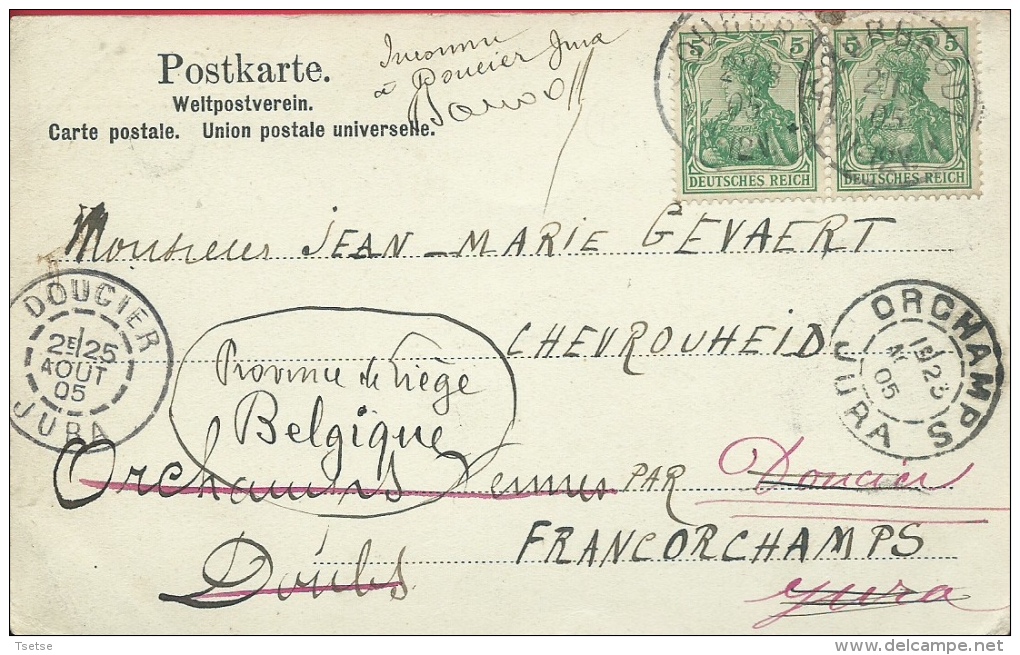 Postkarte.
Weltpostverein.
Carte postale. Union postale universelle.
Inconnu
à Doucier Jura
5 5
5 5
DEUTSCHES REICH
DEUTSCHES REICH
Monsieur JEAN-MARIE GEVAERT
DOUCIER
2E/25
AOUT
05
JURA
CHEVROUHEID
ORCHAMPS
1E/23
05
JURA
Province de Liège
Belgique
Orchamps Vennes PAR Doucier
FRANCORCHAMPS
Doubs
Jura
Tsetse
delcampe.net